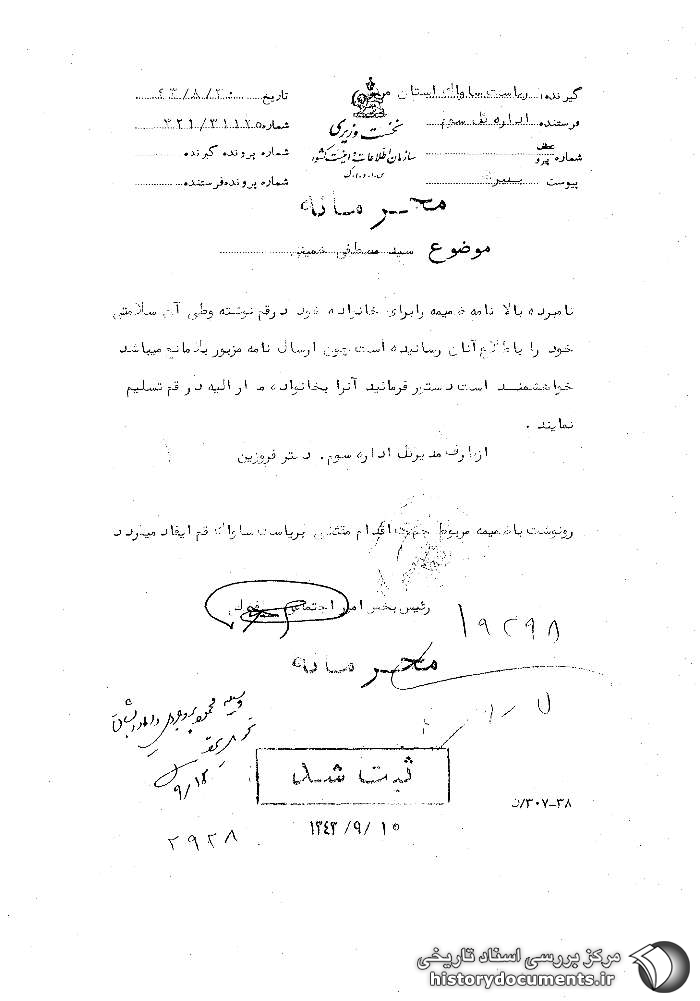 گیرنده: ریاست ساواک استان مرکز
فرستنده اداره کل سوم
شماره عطف پیرو
پیوست
نخست وزیری
سازمان اطلاعات و امنیت کشور
س.ا.و.ا.ک
تاریخ ۴۳/۸/۳۰
شماره ۳۲۱/۳۱۱۲۵
شماره پرونده گیرنده
شماره پرونده فرستنده
محرمانه
موضوع سید مصطفی خمینی
نامبرده بالا نامه ضمیمه را برای خانواده خود در قم نوشته وطی آن سلامتی
خود را باطلاع آنان رسانیده است چون ارسال نامه مزبور بلامانع میباشد
خواهشمند است دستور فرمائید آنرا بخانواده مشارالیه در قم تسلیم
نمایند .
از طرف مدیرکل اداره سوم.
رونوشت باضمیمه مربوط جهت اقدام مقتضی بریاست ساواک قم ایفاد میگردد
رئیس بخش امور اجتماعی
۱۹۲۹۸
محرمانه
۹/۱۲
ثبت شد
۱۳۴۳/۹/۱۵
۳۰۷-۳۸/ن
۲۹۲۸
مرکز بررسی اسناد تاریخی
historydocuments.ir